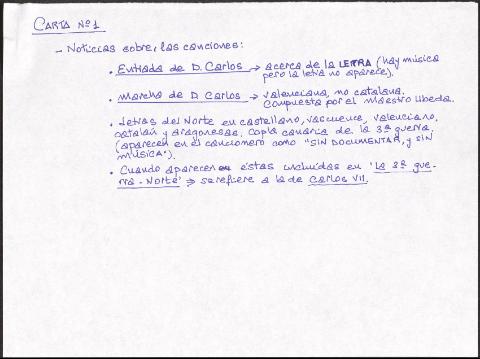 CARTA Nº 1
- Noticias sobre, las canciones:
· Entrada de D. Carlos → acerca de la LETRA (hay música
pero la letra no aparece).
· Marcha de D. Carlos → valenciana, no catalana.
Compuesta por el maestro Ubeda.
· Letras del Norte en castellano, vascuence, valenciano,
catalán y aragonesas. Copla canaria de la 3ª guerra.
(aparecen en el cancionero como "SIN DOCUMENTAR, y SIN
MÚSICA").
· Cuando aparecen éstas incluidas en "La 3ª gue-
rra-Norte" ⇒ se refiere a la de Carlos VII.